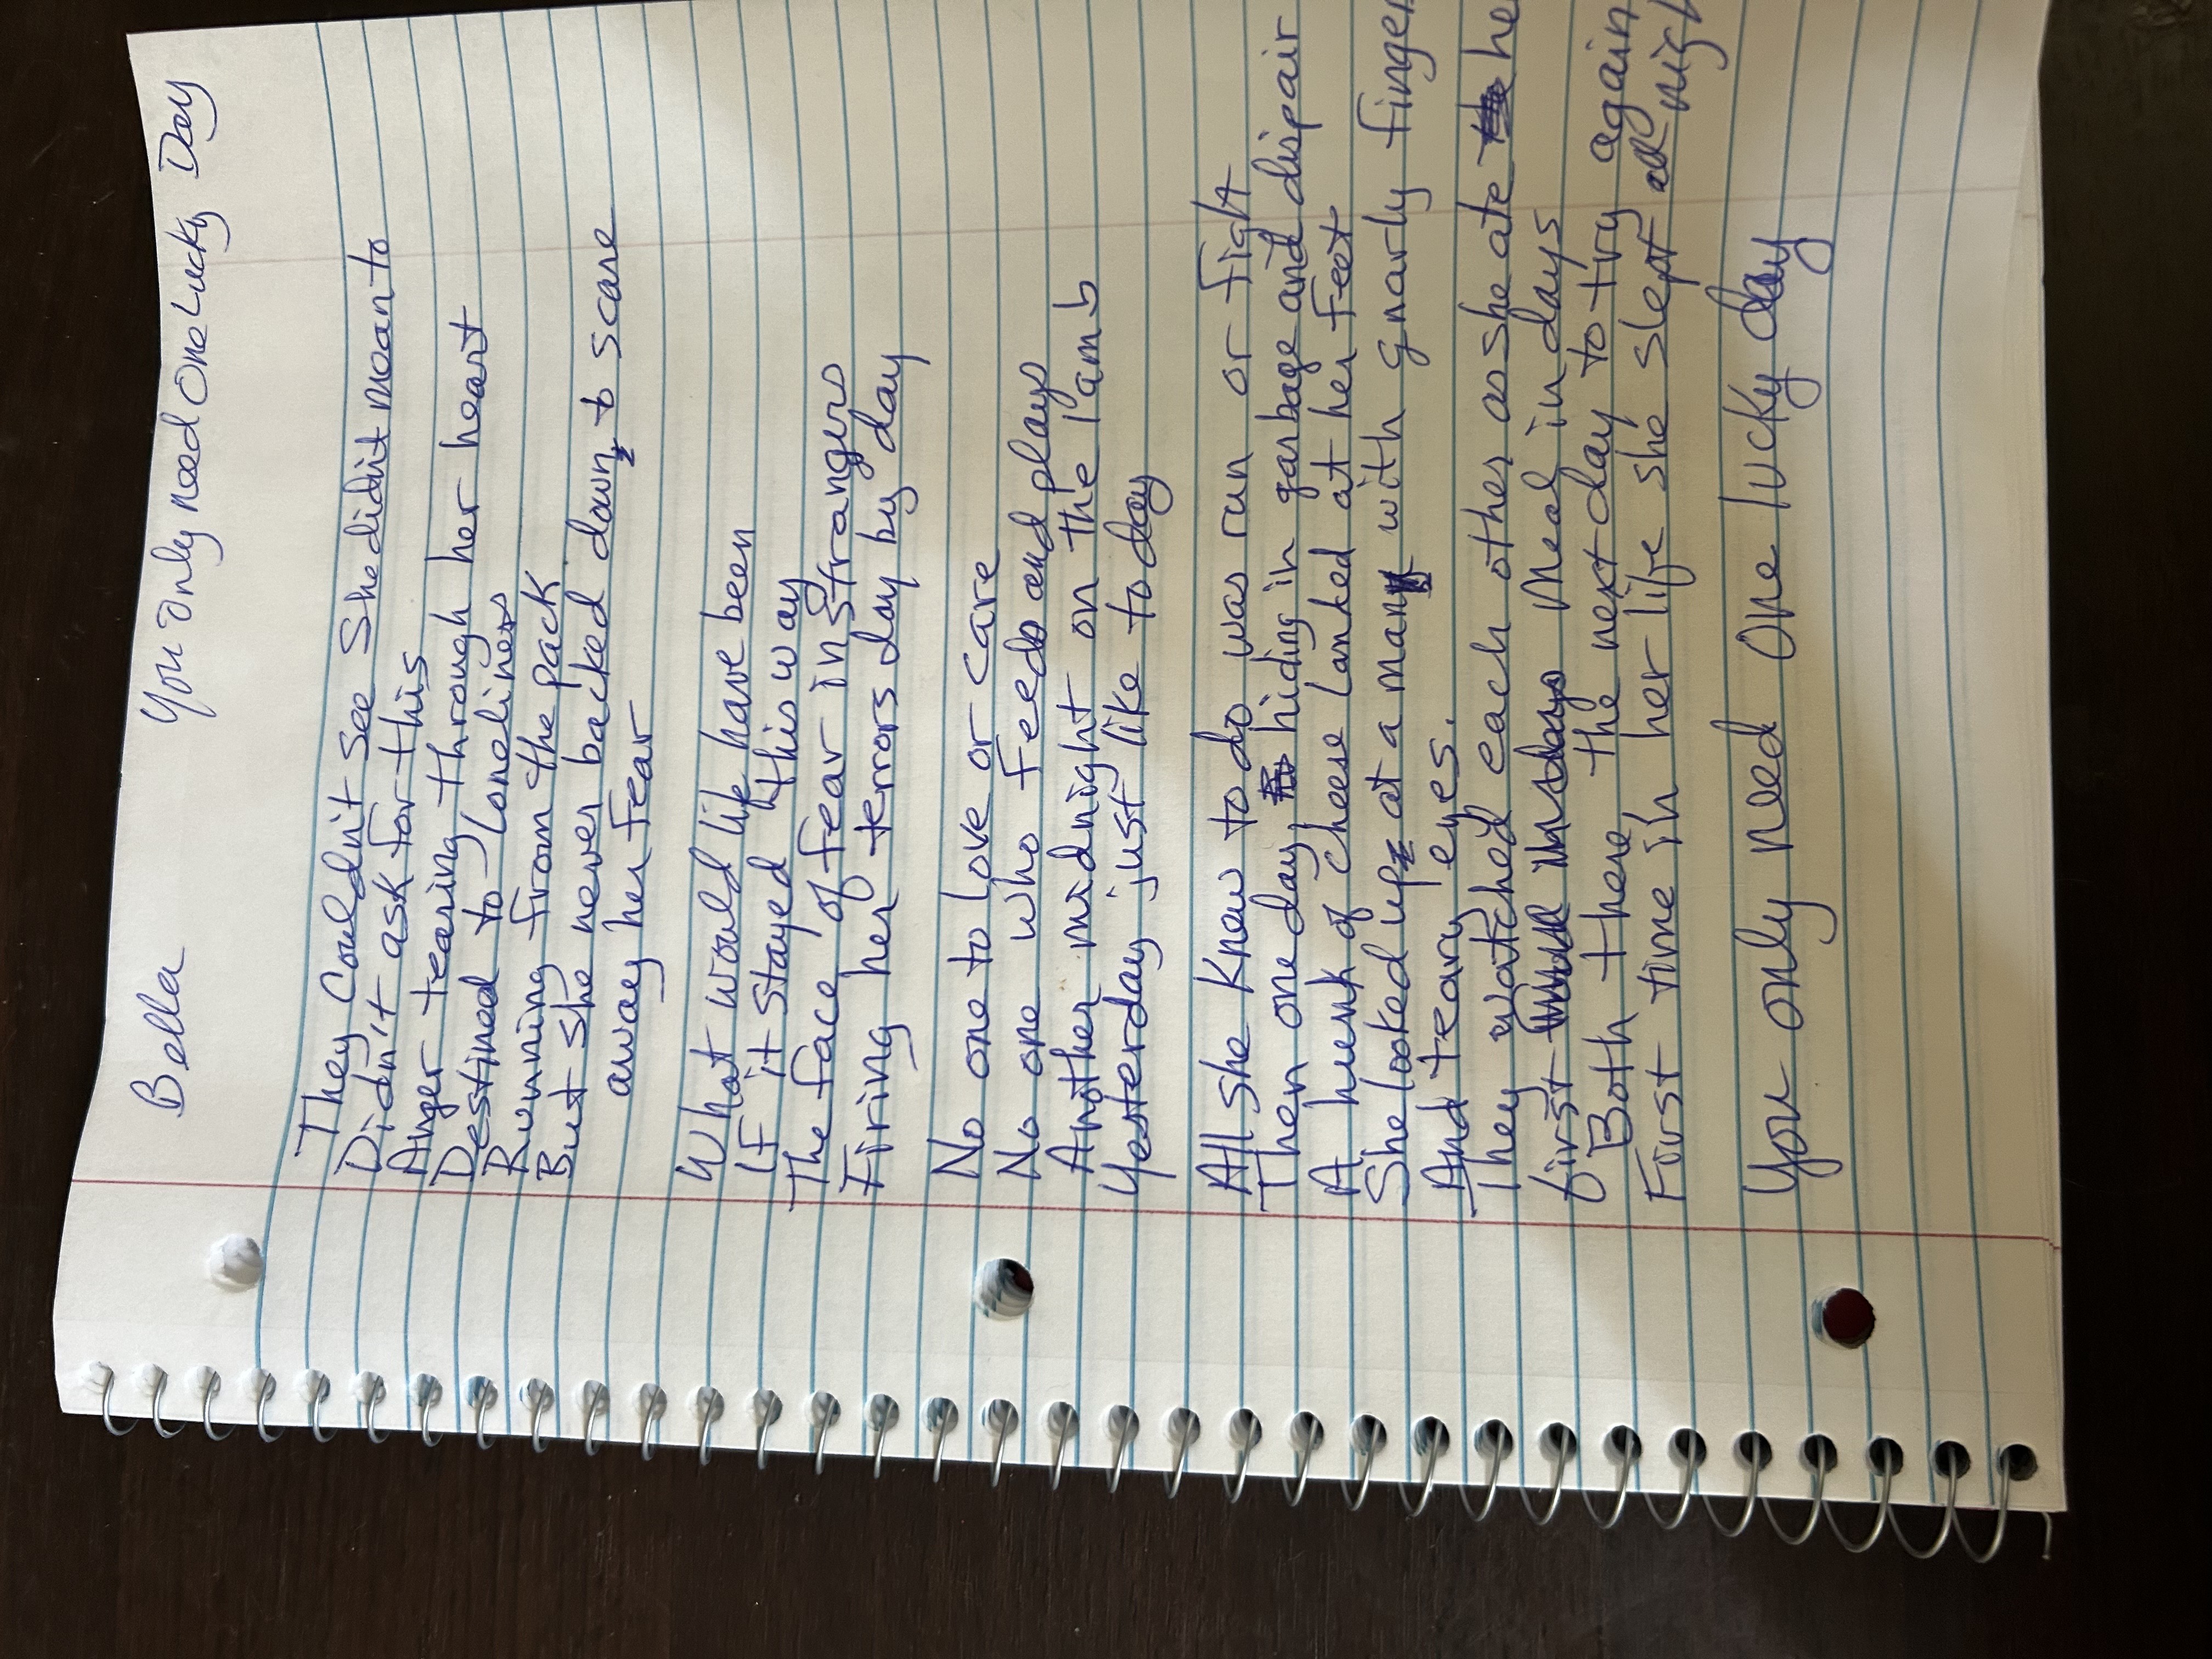 Bella You only need One Lucky Day
They Couldn't see She didn't mean to
Didn't ask for this
Anger tearing through her heart
Destined to loneliness
Running from the pack
But she never backed down to scare
away her fear
What would life have been
If it stayed this way
The face of fear in strangers
Firing her terrors day by day
No one to love or care
No one who feeds and plays
Another midnight on the lamb
Yesterday just like today
All she knew to do was run or fight
Then one day hiding in garbage and dispair
A hunk of cheese landed at her feet
She looked up at a man with gnarly finger
And teary eyes.
They watched each other as she ate he
first meal in days
Both there the next day to try again
First time in her life she slept at nigh
You only need One lucky day